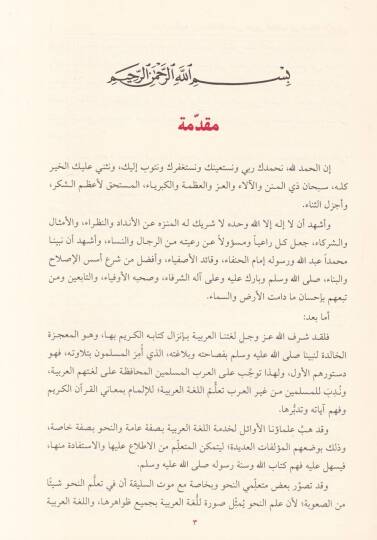 بسم الله الرحمن الرحيم
مقدّمة
إن الحمد لله، نحمدك ربي ونستعينك ونستغفرك ونتوب إليك، ونثني عليك الخير
كله، سبحان ذي المنن والآلاء والعز والعظمة والكبرياء، المستحق لأعظم الشكر،
وأجزل الثناء.
وأشهد أن لا إله إلا الله وحده لا شريك له المنزه عن الأنداد والنظراء، والأمثال
والشركاء، جعل كل راعياً ومسؤولاً عن رعيته من الرجال والنساء، وأشهد أن نبينا
محمداً عبد الله ورسوله إمام الحنفاء، وقائد الأصفياء، وأفضل من شرع أسس الإصلاح
والبناء، صلى الله وسلم وبارك عليه وعلى آله الشرفاء، وصحبه الأوفياء، والتابعين ومن
تبعهم بإحسان ما دامت الأرض والسماء.
أما بعد:
فلقد شرف الله عز وجل لغتنا العربية بإنزال كتابه الكريم بها، وهو المعجزة
الخالدة لنبينا صلى الله عليه وسلم بفصاحته وبلاغته، الذي أُمِرَ المسلمون بتلاوته، فهو
دستورهم الأول، ولهذا توجَّب على العرب المسلمين المحافظة على لغتهم العربية،
ونُدِبَ للمسلمين من غير العرب تعلُّمُ اللغة العربية؛ للإلمام بمعاني القرآن الكريم
وفهم آياته وتدبُّرها.
وقد هبَّ علماؤنا الأوائل لخدمة اللغة العربية بصفة عامة والنحو بصفة خاصة،
وذلك بوضعهم المؤلفات العديدة؛ ليتمكن المتعلّم من الاطلاع عليها والاستفادة منها،
فيسهل عليه فهم كتاب الله وسنة رسوله صلى الله عليه وسلم.
وقد تصوّر بعض متعلّمي النحو وبخاصة مع موت السليقة أن في تعلُّم النحو شيئا
من الصعوبة؛ لأن علم النحو يُمثّل صورة للُّغة العربية بجميع ظواهرها، واللغة العربية
٣